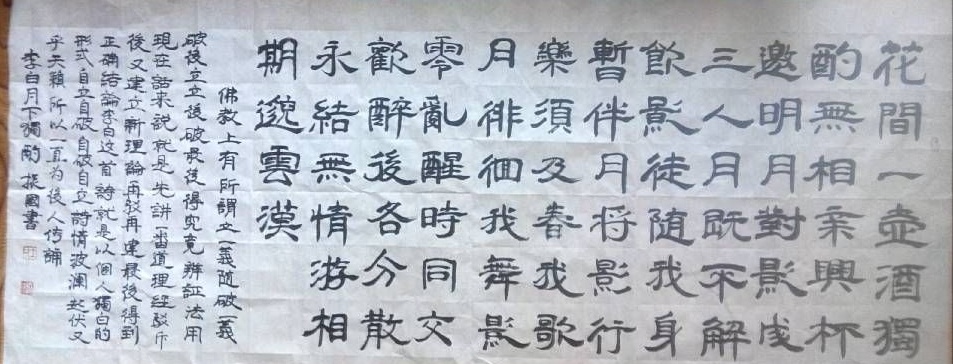 花間一壺酒獨
酌無相亲興杯
邀明月對影成
三人月既不解
飲影徒隨我身
暫伴月将影行
樂須及春我歌
月徘徊我舞影
零亂醒時同交
歡醉後各分散
永結無情游相
期邈雲漢
佛教上有所謂立一義隨破一義
破後立立後破最後得究竟辨証法用
現在話來説就是先講一番道理經駁斥
後又建立新理論再駁再建最後得到
正确結論李白這首詩就是以個人獨白的
形式自立自破自破自立詩情波瀾起伏又
乎天籟所以一直為後人傳誦
李白月下獨酌 振國書